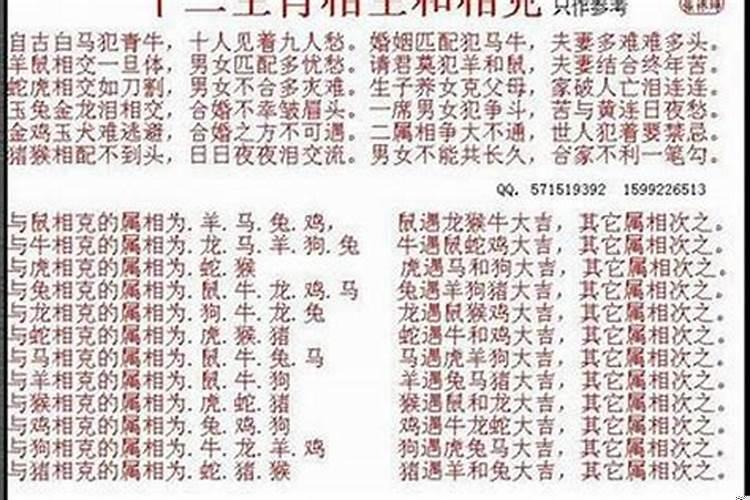 十二生肖相生和相克 只作参考
自古白马犯青牛，十人见着九人愁。婚姻匹配犯马牛，夫妻多难难多头。
羊鼠相交一旦体，男女匹配多忧愁。请君莫犯羊和鼠，夫妻结合终年苦。
蛇虎相交如刀割，男女不合多灾难。生子养女克父母，家破人亡泪连连。
玉兔金龙泪相交，合婚不幸皱眉头。一席男女犯争斗，苦与黄连日夜愁。
金鸡玉犬难逃避，合婚之方不可遇。二属相争大不通，世人犯着要禁忌。
猪猴相配不到头，日日夜夜泪交流。男女不能共长久，合家不利一笔勾。
QQ. 571519392 1599226513
与鼠相克的属相为. 羊. 马. 兔. 鸡, 鼠遇龙猴牛大吉，其它属相次之。
与牛相克的属相为. 龙. 马. 羊. 狗. 兔 牛遇鼠蛇鸡大吉，其它属相次之。
与虎相克的属相为. 蛇. 猴 虎遇马和狗大吉，其它属相次之。
与兔相克的属相为. 鼠. 牛. 龙. 鸡. 马 兔遇羊狗猪大吉，其它属相次之。
与龙相克的属相为. 狗. 牛. 龙. 兔 龙遇鼠猴鸡大吉，其它属相次之。
与蛇相克的属相为. 虎. 猴. 猪 蛇遇牛和鸡大吉，其它属相次之。
与马相克的属相为. 鼠. 牛. 兔. 马 马遇虎羊狗大吉，其它属相次之。
与羊相克的属相为. 鼠. 牛. 狗 羊遇兔马猪大吉，其它属相次之。
与猴相克的属相为. 虎. 蛇. 猪 猴遇鼠和龙大吉，其它属相次之。
与鸡相克的属相为. 兔. 鸡. 狗 鸡遇牛龙蛇大吉，其它属相次之。
与狗相克的属相为. 牛. 龙. 羊. 鸡 狗遇虎兔马大吉，其它属相次之。
与猪相克的属相为. 蛇. 猪. 猴 猪遇羊和兔大吉，其它属相次之。